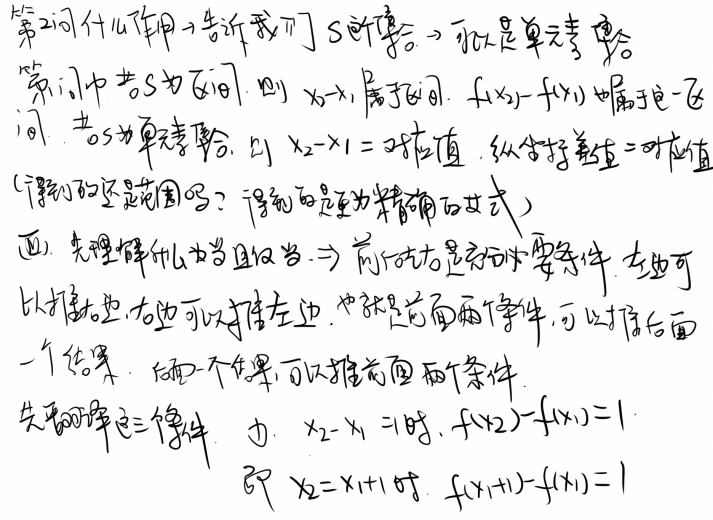 第2问什么作用→告诉我们S是个集合.→可以是单元素集合
第1问中若S为区间.则 x₂-x₁属于区间. f(x₂)-f(x₁)也属于这一区
间.若S为单元素集合.则 x₂-x₁=对应值.纵坐标差值=对应值
(得到的还是范围吗?得到的是更为精确的等式)
(四).先理解什么为当且仅当.⇒前后左右是充分必要条件.左边可
以推右边.右边可以推左边.也就是前面两个条件,可以推后面
一个结果.后面一个结果,可以推前面两个条件.
先翻译这三个条件.①. x₂-x₁=1时. f(x₂)-f(x₁)=1.
即 x₂=x₁+1时. f(x₁+1)-f(x₁)=1